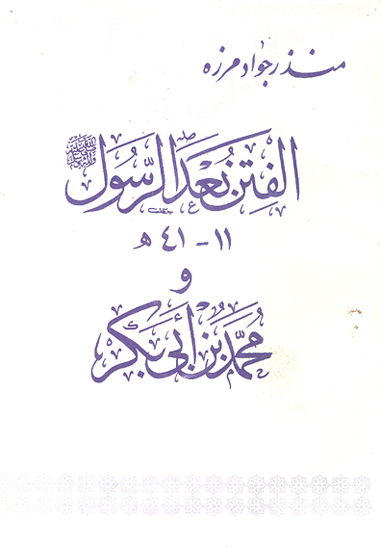 منذر جواد مرزه
الفِتَنُ بَعْدَ الرَّسُول ﷺ
١١ - ٤١ هـ
و
مُحَمَّدُ بْنُ أَبِي بَكْر